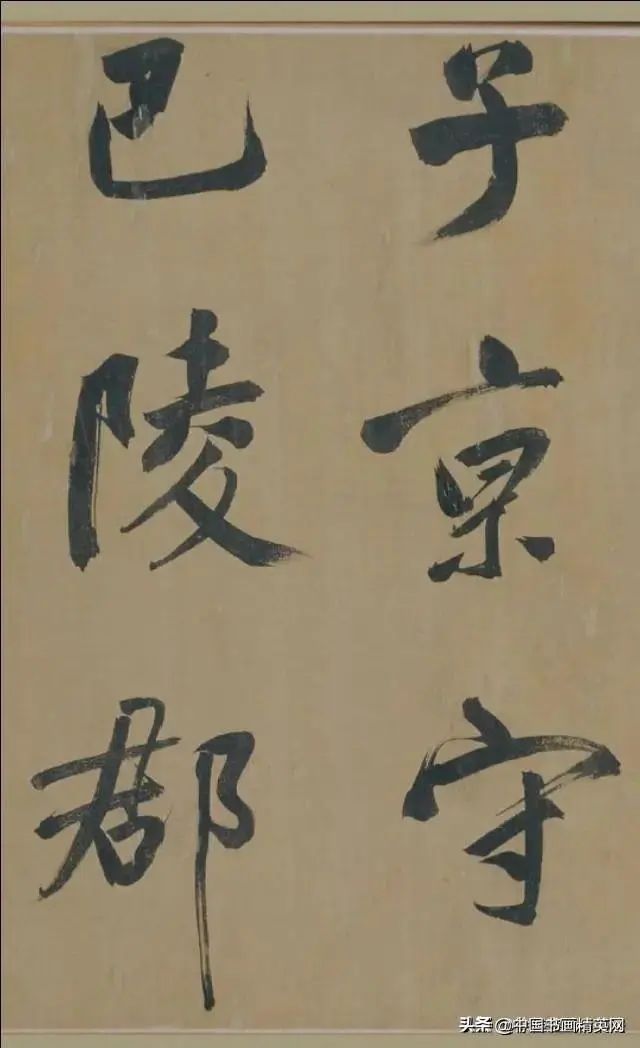 子京守
巴陵郡
头条 @中国书画精英网